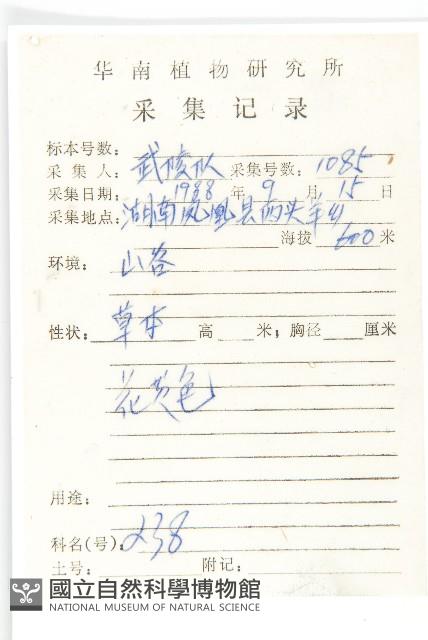 华南植物研究所
采集记录
标本号数:
采集人: 武陵队 采集号数: 1085
采集日期: 1988 年 9 月 15 日
采集地点: 湖南凤凰县两头羊乡
海拔 600 米
环境: 山谷
性状: 草本 高 米; 胸径 厘米
花黄色
用途:
科名(号): 238
土号: 附记:
國立自然科學博物館
NATIONAL MUSEUM OF NATURAL SCIENCE